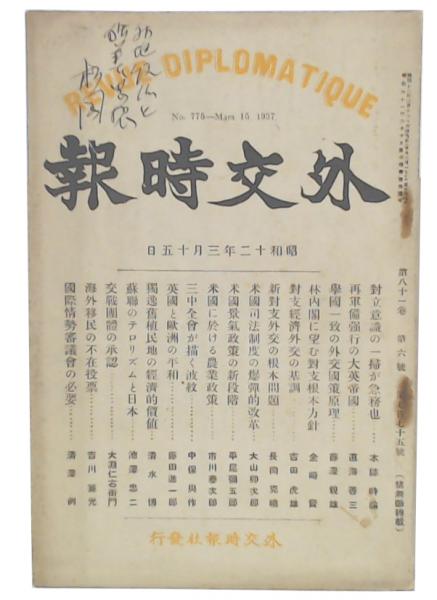 REVUE DIPLOMATIQUE
No. 775—Mars 15 1937
報時交外
日五十月三年二十和昭
第八十一卷 第六號
對立意識の一掃が急務也 本誌時論
再軍備強行の大英帝國 直海善三
擧國一致の外交國策原理 藤澤親雄
林內閣に望む對支根本方針 金崎賢
對支經濟外交の基調 吉田虎雄
新對支外交の根本問題 長岡克曉
米國司法制度の爆彈的改革 大山卯次郎
米國景氣政策の新段階 平尾彌五郎
米國に於ける農業政策 市川泰次郎
三中全會が描く波紋 中保與作
英國と歐洲の平和 藤田進一郎
獨逸舊植民地の經濟的價値 清水博
蘇聯のテロリズムと日本 池澤忠二
交戰團體の承認 大淵仁右衞門
海外移民の不在投票 吉川兼光
國際情勢審議會の必要 清澤洌
行發社報時交外